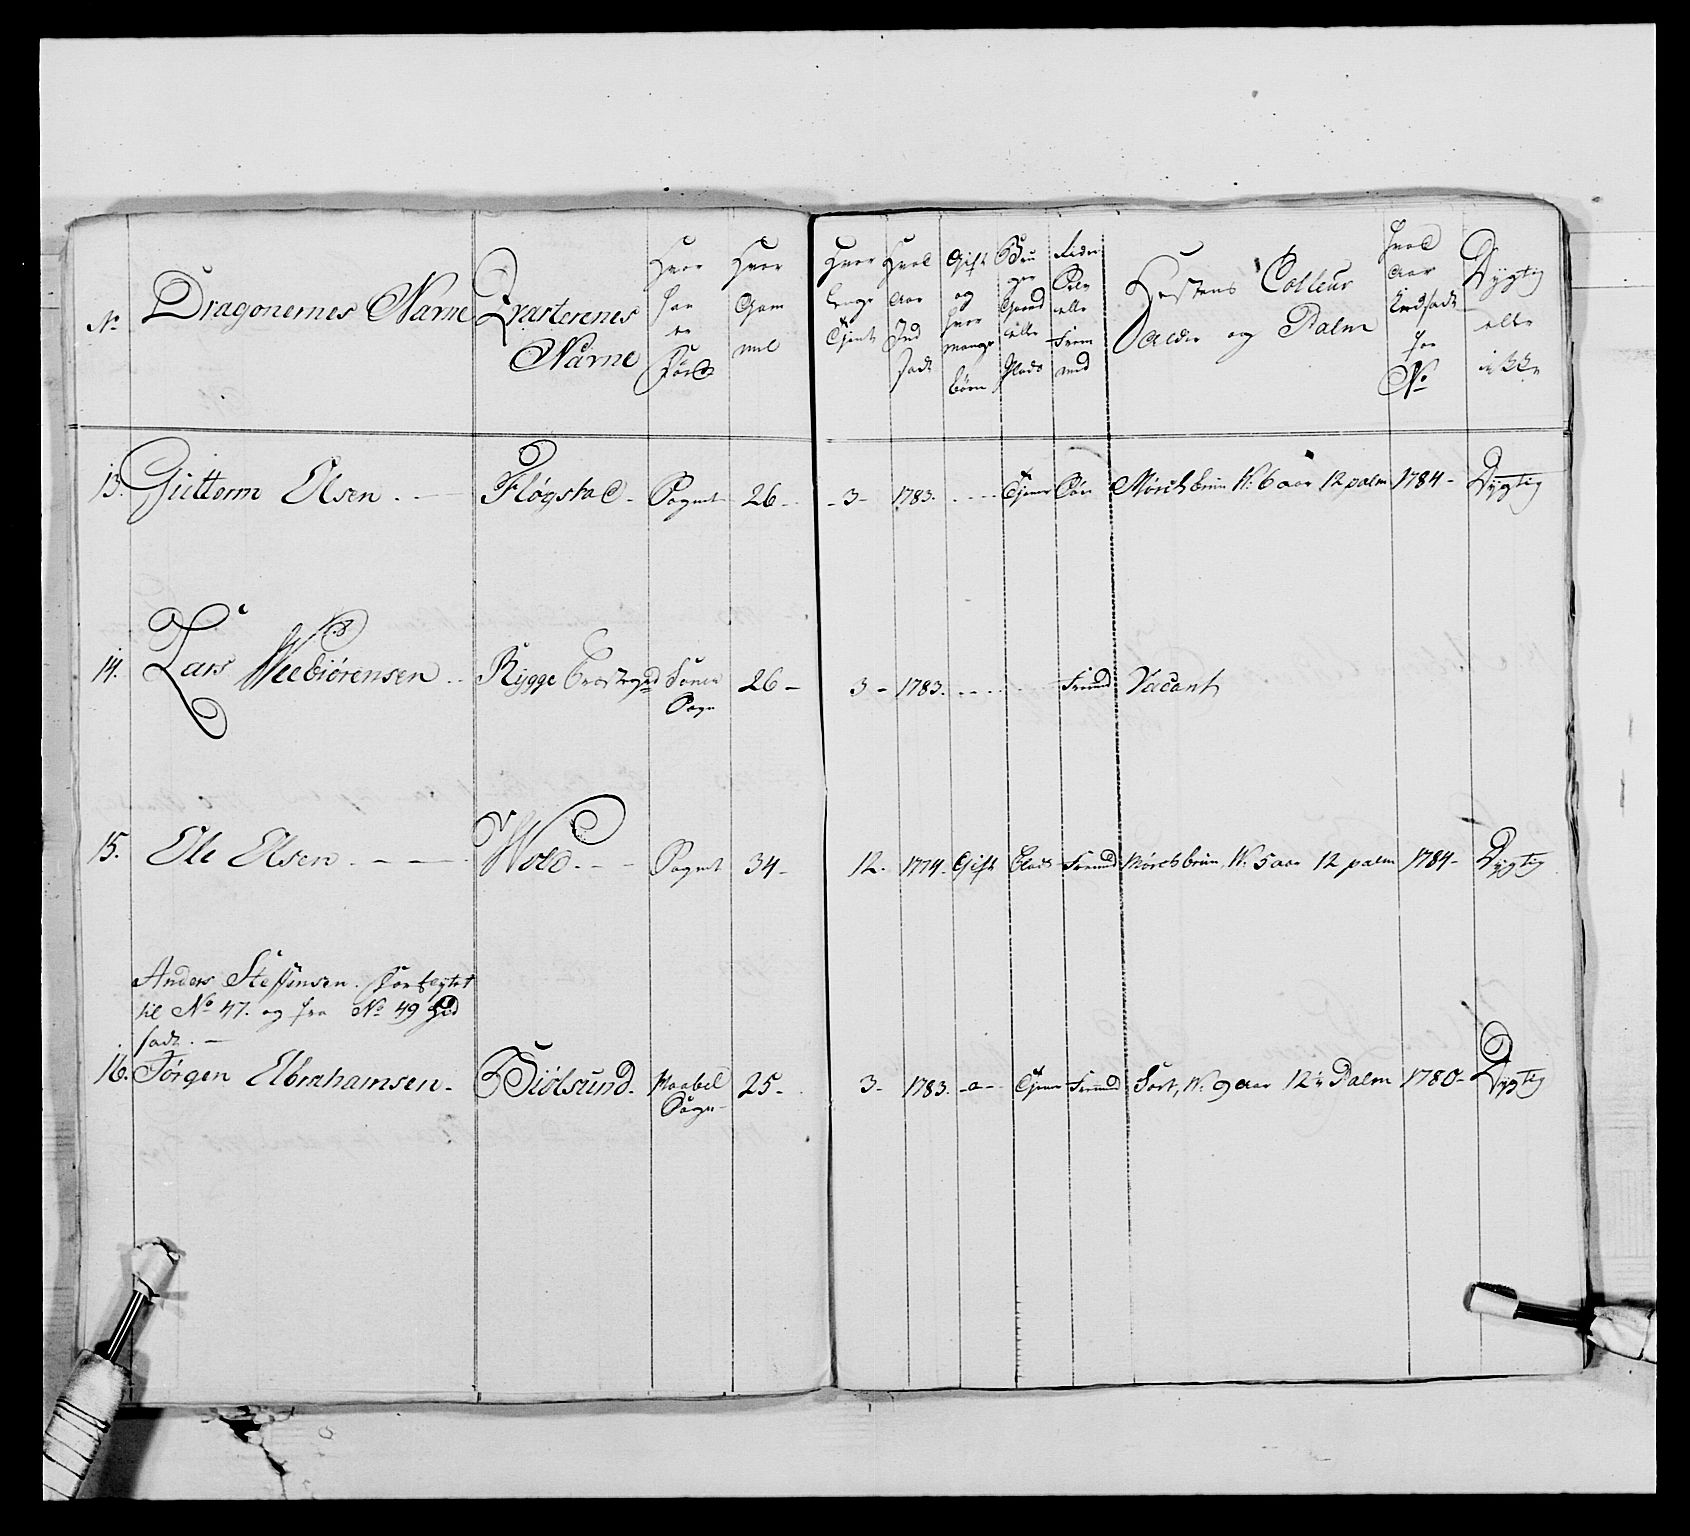 No
Dragonernes Navne
Qvarterenes Navne
Hvor han er Født
Hvor Gam mel
Hvor længe Tient
Hvad Aar Ind sadt
Gift og hvor mange børn
Bru ger Gaard eller Plads
eller Frem med
Hestens Colleur Alder og Palm
Hvad Aar Indsadt for No
Dygtig eller ikke
13. Guttorm Olsen . — Fløgstad - Sognet 26 - - 3 - 1783. . - - - Tjener Søn Mørckbrun V. 6 aar 12 palm 1784 - Dygtig
14. Lars Weebiörensen . . Rygge Præstegd Soner Sogn 26 - 3 - 1783. . . . . Fremd Vacant
15. Ole Olsen . - — - Wold. - - Sognet 34 - 12. 1774. Gift Plads Fremd Mørckbrun V. 5 aar 12 palm 1784 - Dygtig
Anders Steffensen. forbyttet
til No 47. og fra No 49 Hid
sadt. —
16. Jørgen Abrahamsen - Sidlsund. Haabel Sogn - 25 - 3 - 1783. - a - Tjener Fremd Sort, V. 9 aar 12¼ Palm 1780 - Dygtig